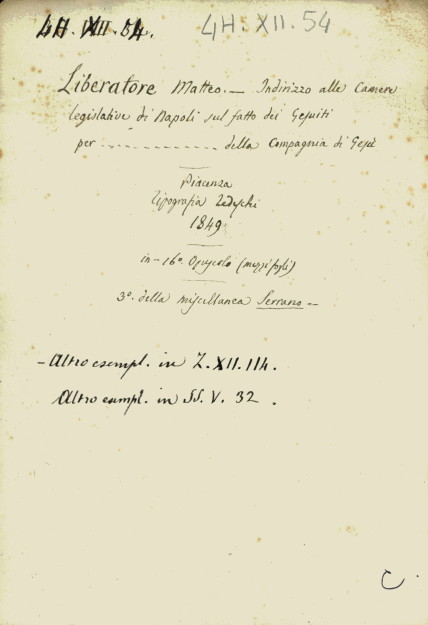 4H. XII. 54.
4H. XII. 54
Liberatore Matteo. — Indirizzo alle Camere
legislative di Napoli sul fatto dei Gesuiti
per ............... della Compagnia di Gesù
Piacenza
Tipografia Tedeschi
1849
in-16º. Opuscolo (mezzi fogli)
3º. della miscellanea Serrano —
— Altro esempl. in Z. XII. 114.
Altro esempl. in SS. V. 32.
C.